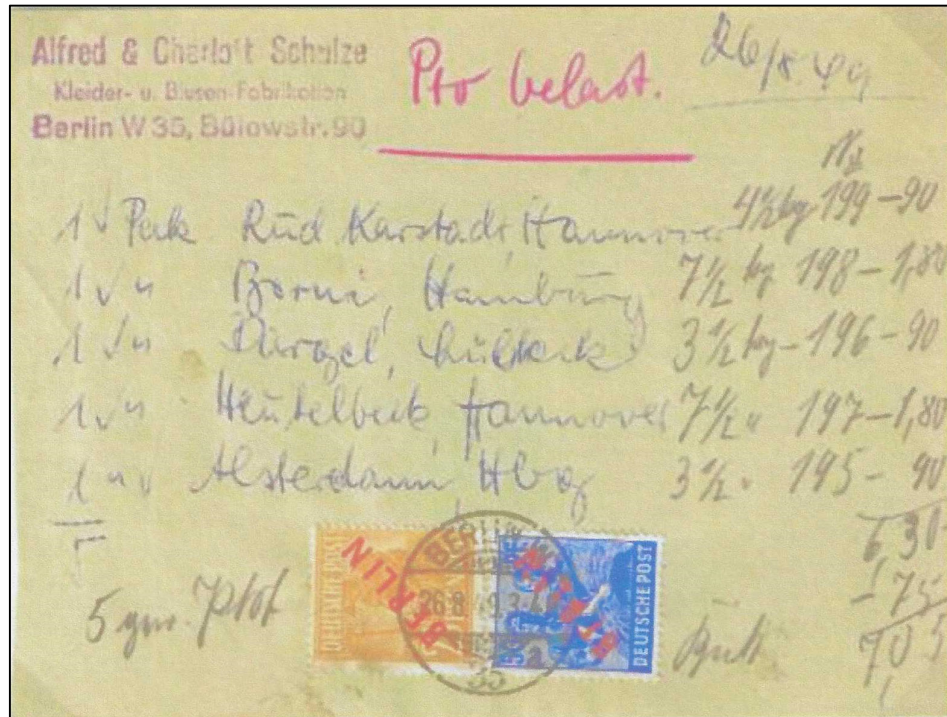 Alfred & Charlott Schulze
Kleider- u. Blusen-Fabrikation
Berlin W 35, Bülowstr. 90
Pto belast.
26/8. 49
1 Pak Rud. Karstadt, Hannover 4½ kg 199 – 90
1 " Hamburg 7½ kg 198 – 1,80
1 " 3½ kg – 196 – 90
1 " Heutelbeck, Hannover 7½ " 197 – 1,80
1 " Alsterdamm, Hbg 3½ " 195 – 90
6,30
5 – 75
7,05
DEUTSCHE POST
BERLIN
BERLIN W
26.8.49.3-4
35
BERLIN
DEUTSCHE POST